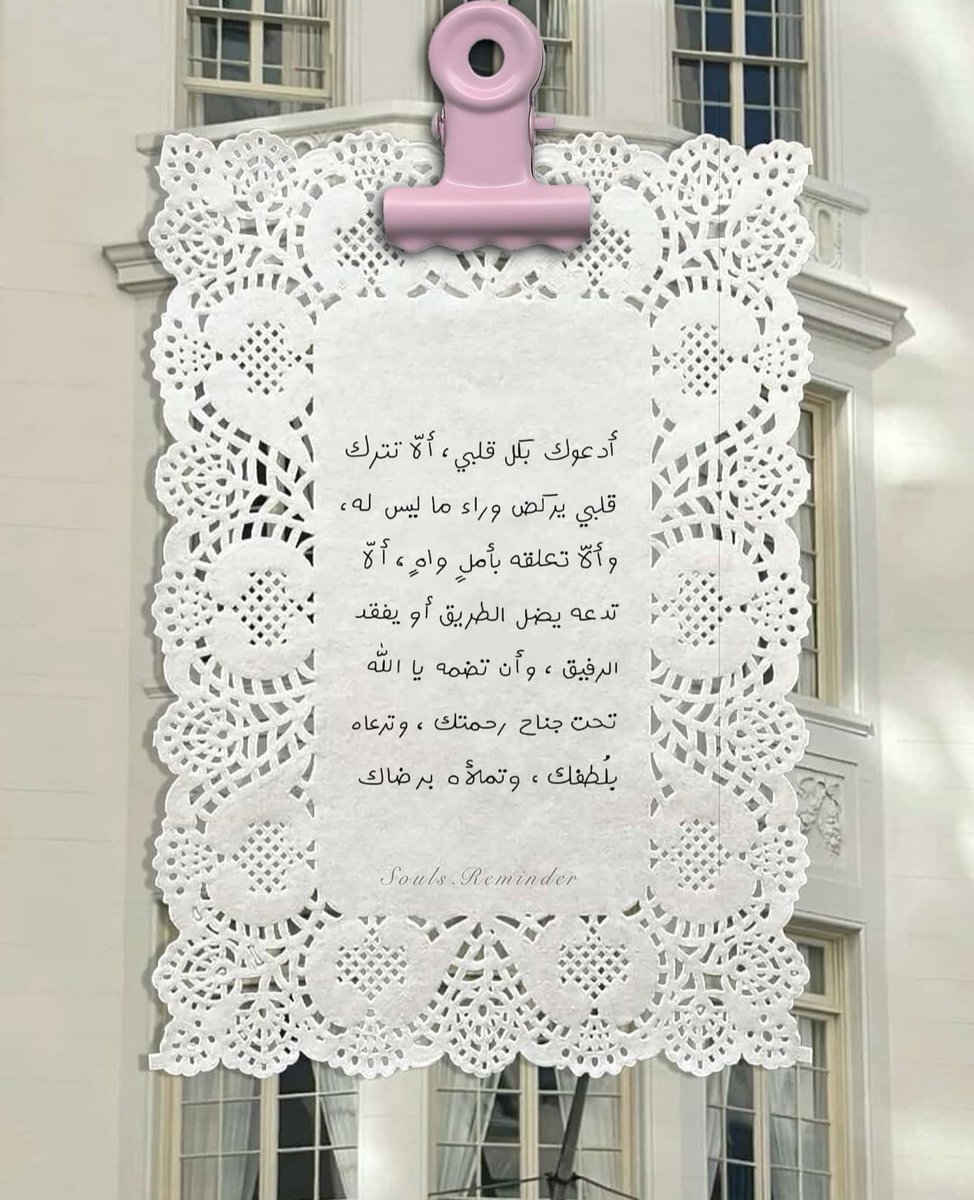 أدعوك بكل قلبي، ألّا تترك
قلبي يركض وراء ما ليس له،
وألّا تعلقه بأملٍ واهٍ، ألّا
تدعه يضل الطريق أو يفقد
الرفيق، وأن تضمه يا الله
تحت جناح رحمتك، وترعاه
بلُطفك، وتملأه برضاك
Souls.Reminder